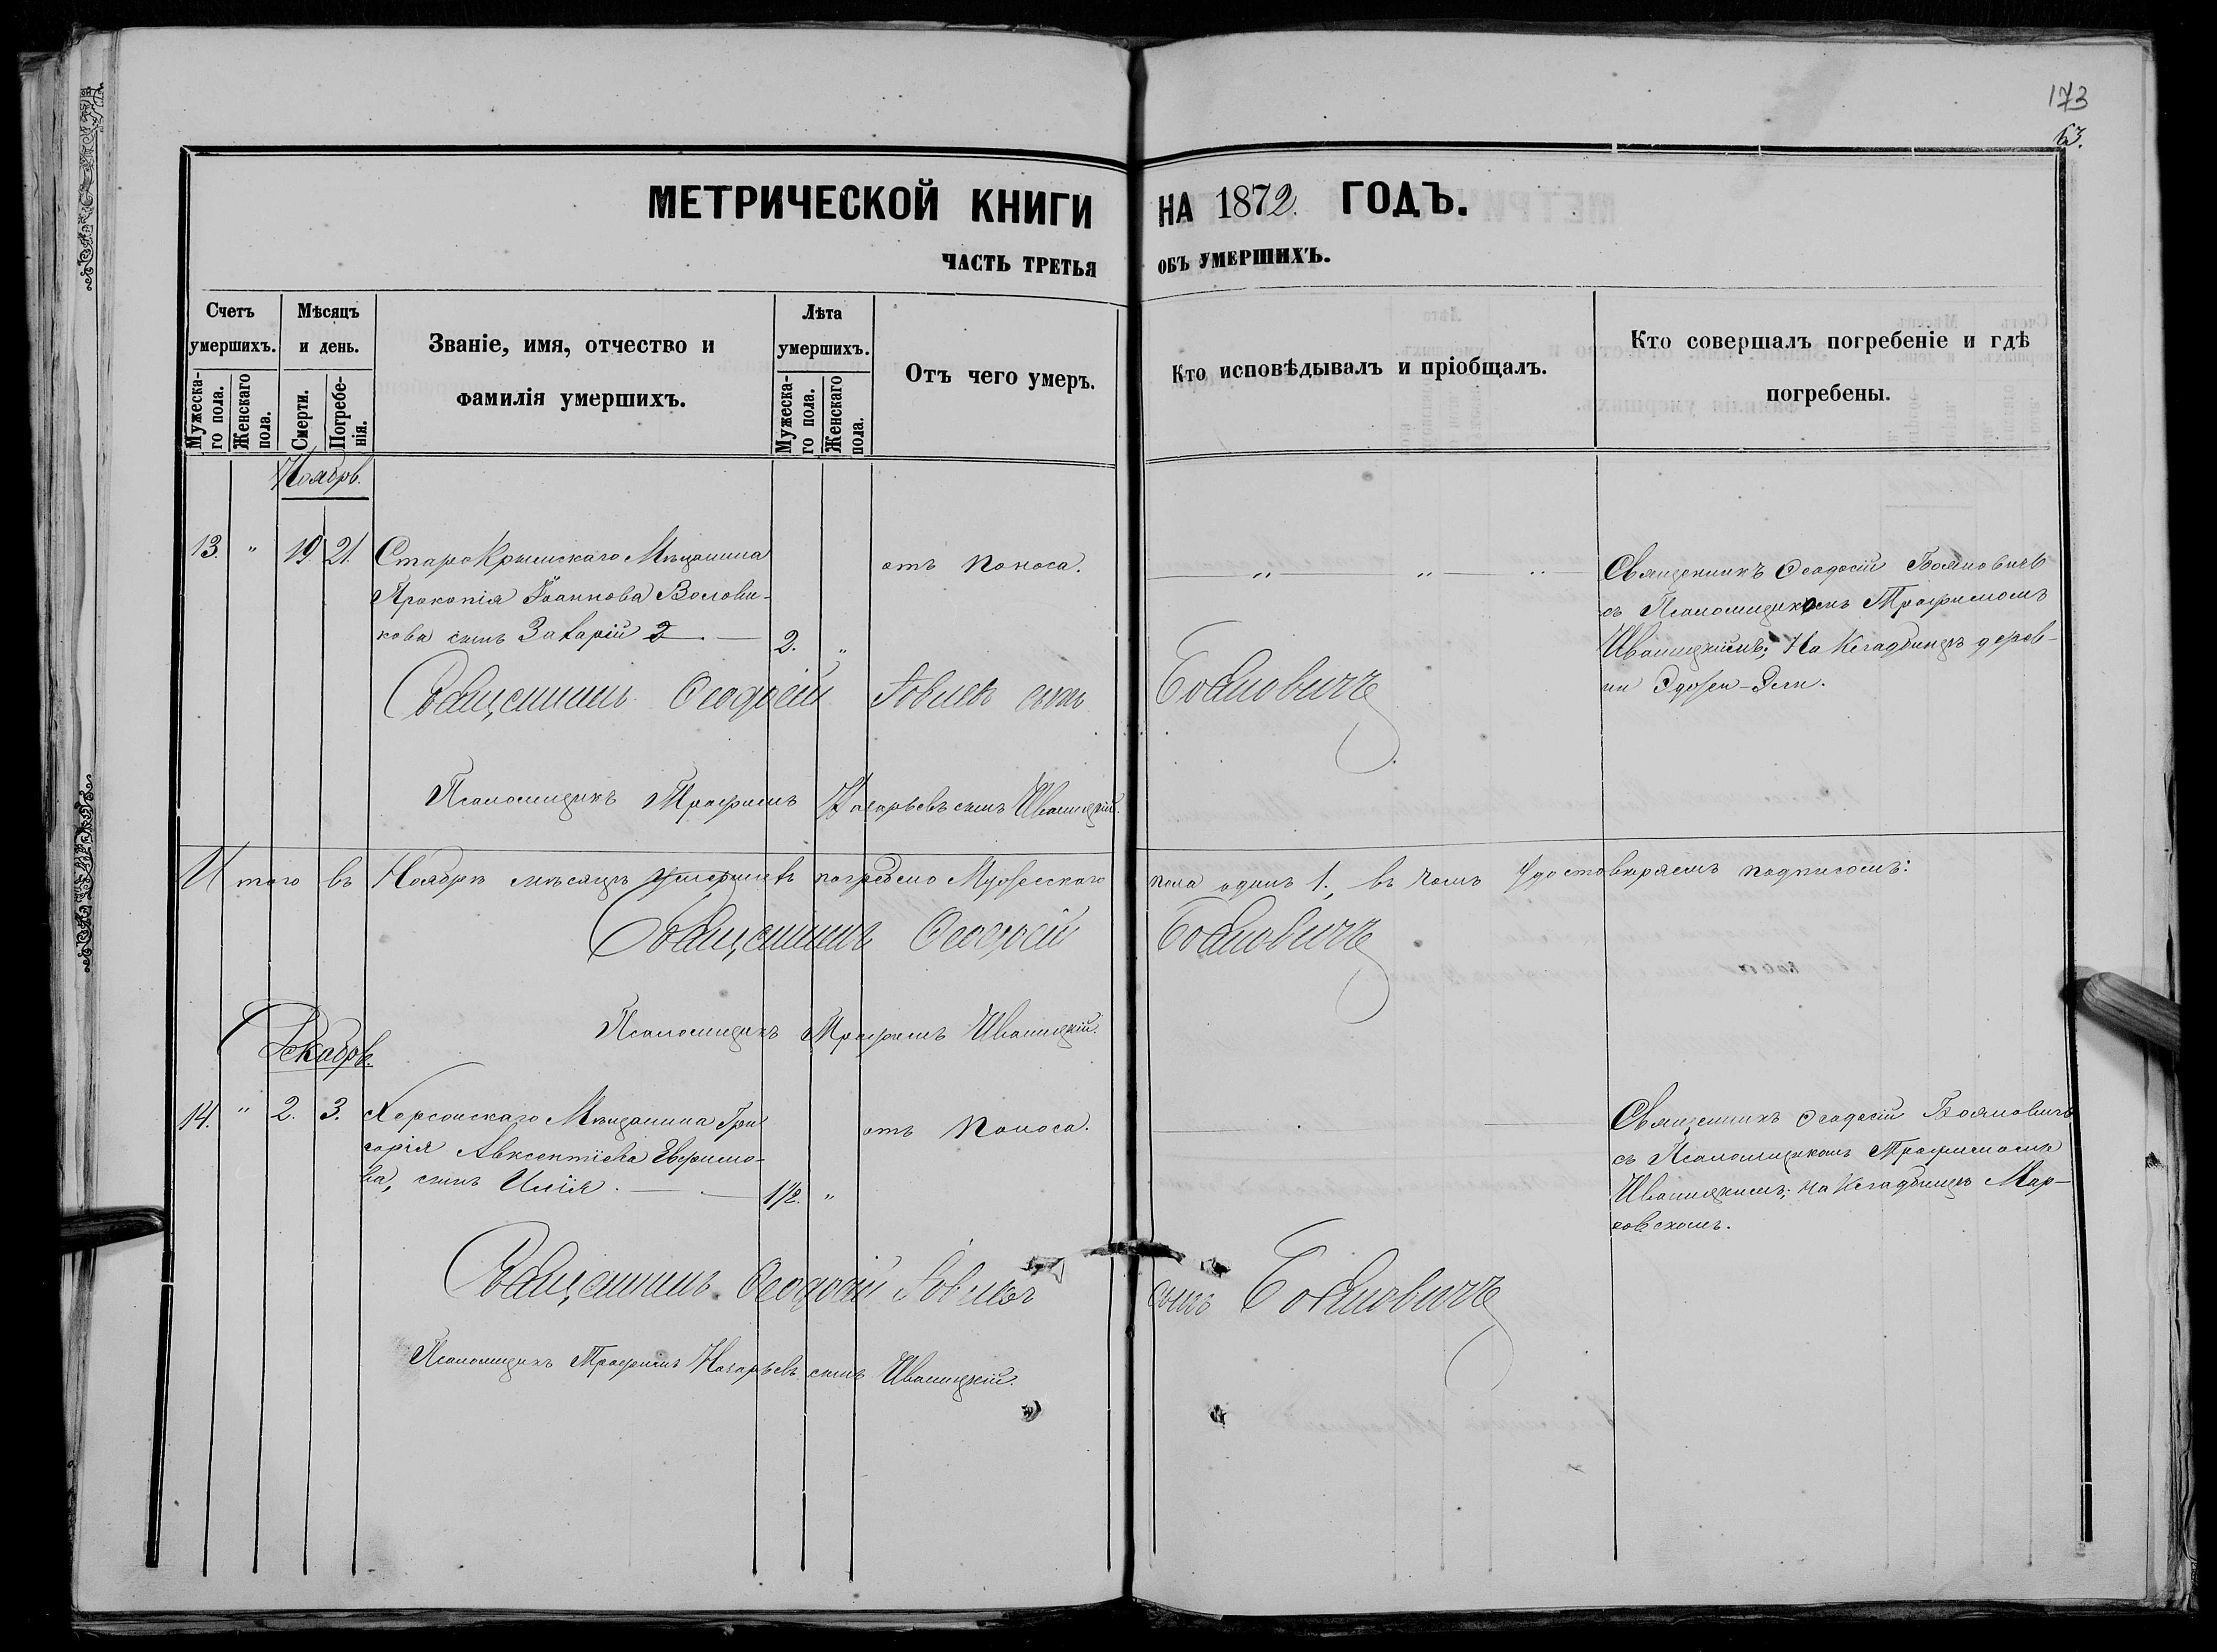 173
63.
МЕТРИЧЕСКОЙ КНИГИ НА 1872. ГОДЪ.
ЧАСТЬ ТРЕТЬЯ ОБЪ УМЕРШИХЪ.
Счетъ умершихъ.
Мужеска-го пола.
Женскаго пола.
Мѣсяцъ и день.
Смерти.
Погребе-нія.
Званіе, имя, отчество и
фамилія умершихъ.
Лѣта умершихъ.
Мужеска-го пола.
Женскаго пола.
Отъ чего умеръ.
Кто исповѣдывалъ и пріобщалъ.
Кто совершалъ погребеніе и гдѣ
погребены.
Ноябрь.
13. " 19. 21. СтароКрымскаго Мѣщанина
Прокопія Іоаннова Волови-
кова сынъ Захарій 2. — 2. "
отъ поноса.
" " "
Священникъ Ѳеодосій Бояновичъ
съ Псаломщикомъ Трофимомъ
Иваницкимъ; На Кладбищѣ дерев-
ни
Священникъ Ѳеодосій Іовлевъ сынъ Бояновичъ
Псаломщикъ Трофимъ Назарьевъ сынъ Иваницкій.
Итого въ Ноябрѣ мѣсяцѣ умершихъ погребено Мужескаго пола одинъ 1. въ чемъ Удостовѣряемъ подписомъ:
Священникъ Ѳеодосій Бояновичъ
Псаломщикъ Трофимъ Иваницкій.
Декабрь.
14. " 2. 3. Херсонскаго Мѣщанина Гри
горія Авксентіева Ефимо-
ва, сынъ Илія. — 1 1/2. "
отъ поноса.
Священникъ Ѳеодосій Бояновичъ
съ Псаломщикомъ Трофимомъ
Иваницкимъ; на Кладбищѣ Мар-
ковскомъ.
Священникъ Ѳеодосій Іовлевъ сынъ Бояновичъ
Псаломщикъ Трофимъ Назарьевъ сынъ Иваницкій.